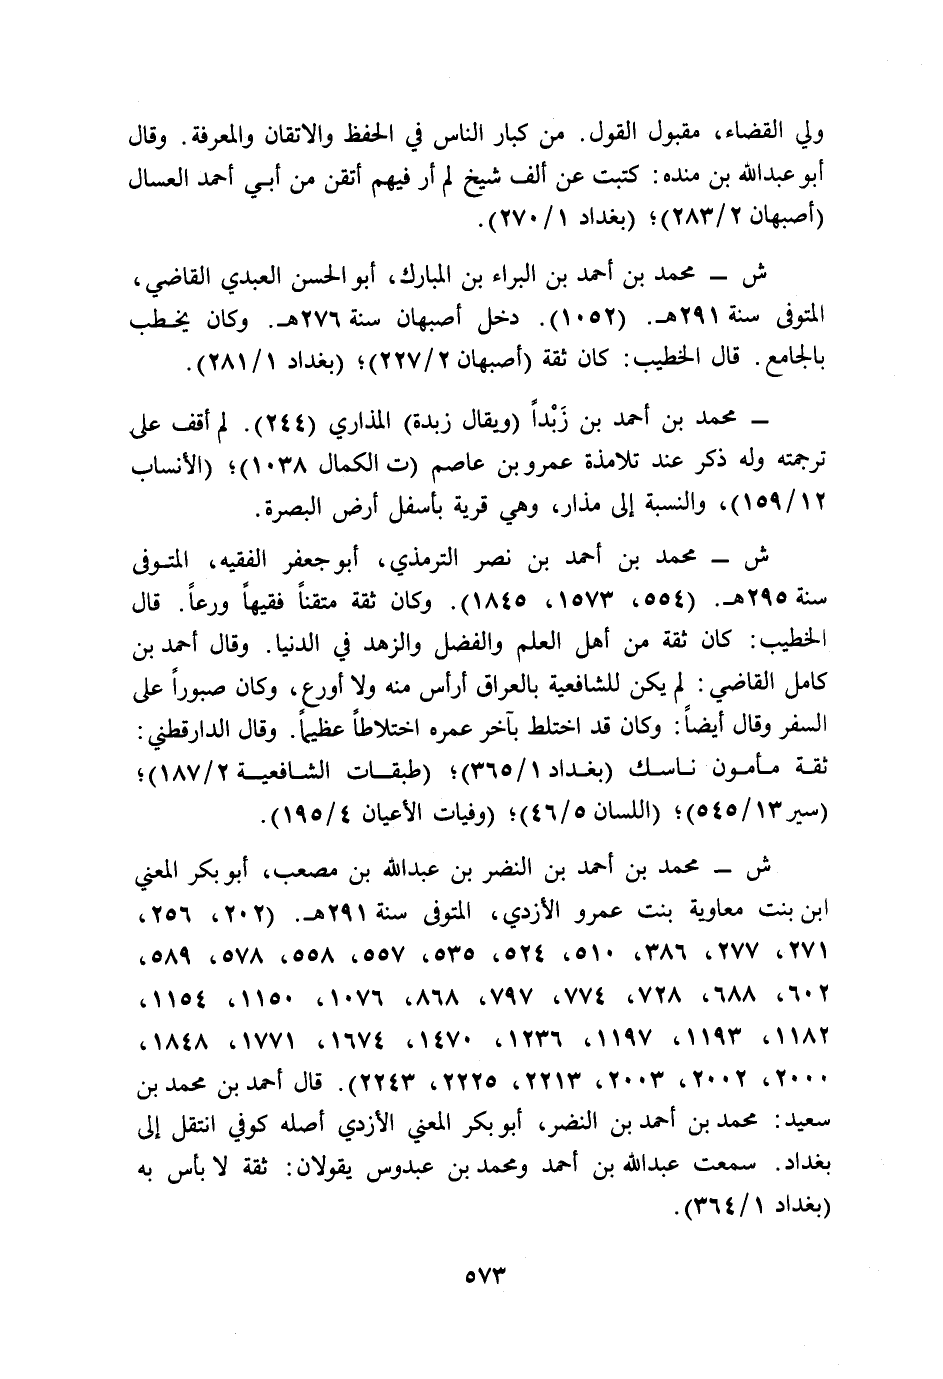 ولي القضاء، مقبول القول. من كبار الناس في الحفظ والاتقان والمعرفة. وقال
أبو عبدالله بن منده: كتبت عن ألف شيخ لم أر فيهم أتقن من أبي أحمد العسال
(أصبهان ٢/٢٨٣)؛ (بغداد ١/٢٧٠).
ش ــ محمد بن أحمد بن البراء بن المبارك، أبو الحسن العبدي القاضي،
المتوفى سنة ٢٩١هـ. (١٠٥٢). دخل أصبهان سنة ٢٧٦هـ. وكان يخطب
بالجامع. قال الخطيب: كان ثقة (أصبهان ٢/٢٢٧)؛ (بغداد ١/٢٨١).
ــ محمد بن أحمد بن زَبْداً (ويقال زبدة) المذاري (٢٤٤). لم أقف على
ترجمته وله ذكر عند تلامذة عمرو بن عاصم (ت الكمال ١٠٣٨)؛ (الأنساب
١٢/١٥٩)، والنسبة إلى مذار، وهي قرية بأسفل أرض البصرة.
ش ــ محمد بن أحمد بن نصر الترمذي، أبو جعفر الفقيه، المتوفى
سنة ٢٩٥هـ. (٥٥٤، ١٥٧٣، ١٨٤٥). وكان ثقة متقناً فقيهاً ورعاً. قال
الخطيب: كان ثقة من أهل العلم والفضل والزهد في الدنيا. وقال أحمد بن
كامل القاضي: لم يكن للشافعية بالعراق أرأس منه ولا أورع، وكان صبوراً على
السفر وقال أيضاً: وكان قد اختلط بآخر عمره اختلاطاً عظيماً. وقال الدارقطني:
ثقة مأمون ناسك (بغداد ١/٣٦٥)؛ (طبقات الشافعية ٢/١٨٧)؛
(سير ١٣/٥٤٥)؛ (اللسان ٥/٤٦)؛ (وفيات الأعيان ٤/١٩٥).
ش ــ محمد بن أحمد بن النضر بن عبدالله بن مصعب، أبو بكر المعني
ابن بنت معاوية بنت عمرو الأزدي، المتوفى سنة ٢٩١هـ. (٢٠٢، ٢٥٦،
٢٧١، ٢٧٧، ٣٨٦، ٥١٠، ٥٢٤، ٥٣٥، ٥٥٧، ٥٥٨، ٥٧٨، ٥٨٩،
٦٠٢، ٦٨٨، ٧٢٨، ٧٧٤، ٧٩٧، ٨٦٨، ١٠٧٦، ١١٥٠، ١١٥٤،
١١٨٢، ١١٩٣، ١١٩٧، ١٢٣٦، ١٤٧٠، ١٦٧٤، ١٧٧١، ١٨٤٨،
٢٠٠٠، ٢٠٠٢، ٢٠٠٣، ٢٢١٣، ٢٢٢٥، ٢٢٤٣). قال أحمد بن محمد بن
سعيد: محمد بن أحمد بن النضر، أبو بكر المعني الأزدي أصله كوفي انتقل إلى
بغداد. سمعت عبدالله بن أحمد ومحمد بن عبدوس يقولان: ثقة لا بأس به
(بغداد ١/٣٦٤).
٥٧٣